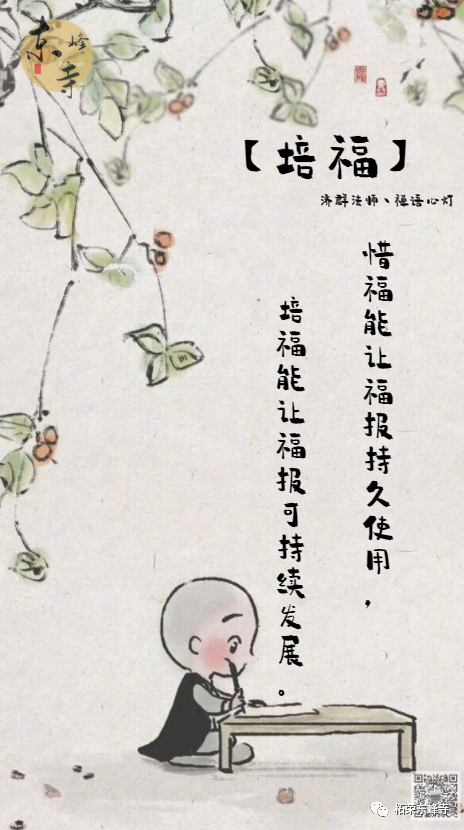 东峰寺
【培福】
济群法师、禅语心灯
惜福能让福报持久使用，
培福能让福报可持续发展。
柘荣东峰寺